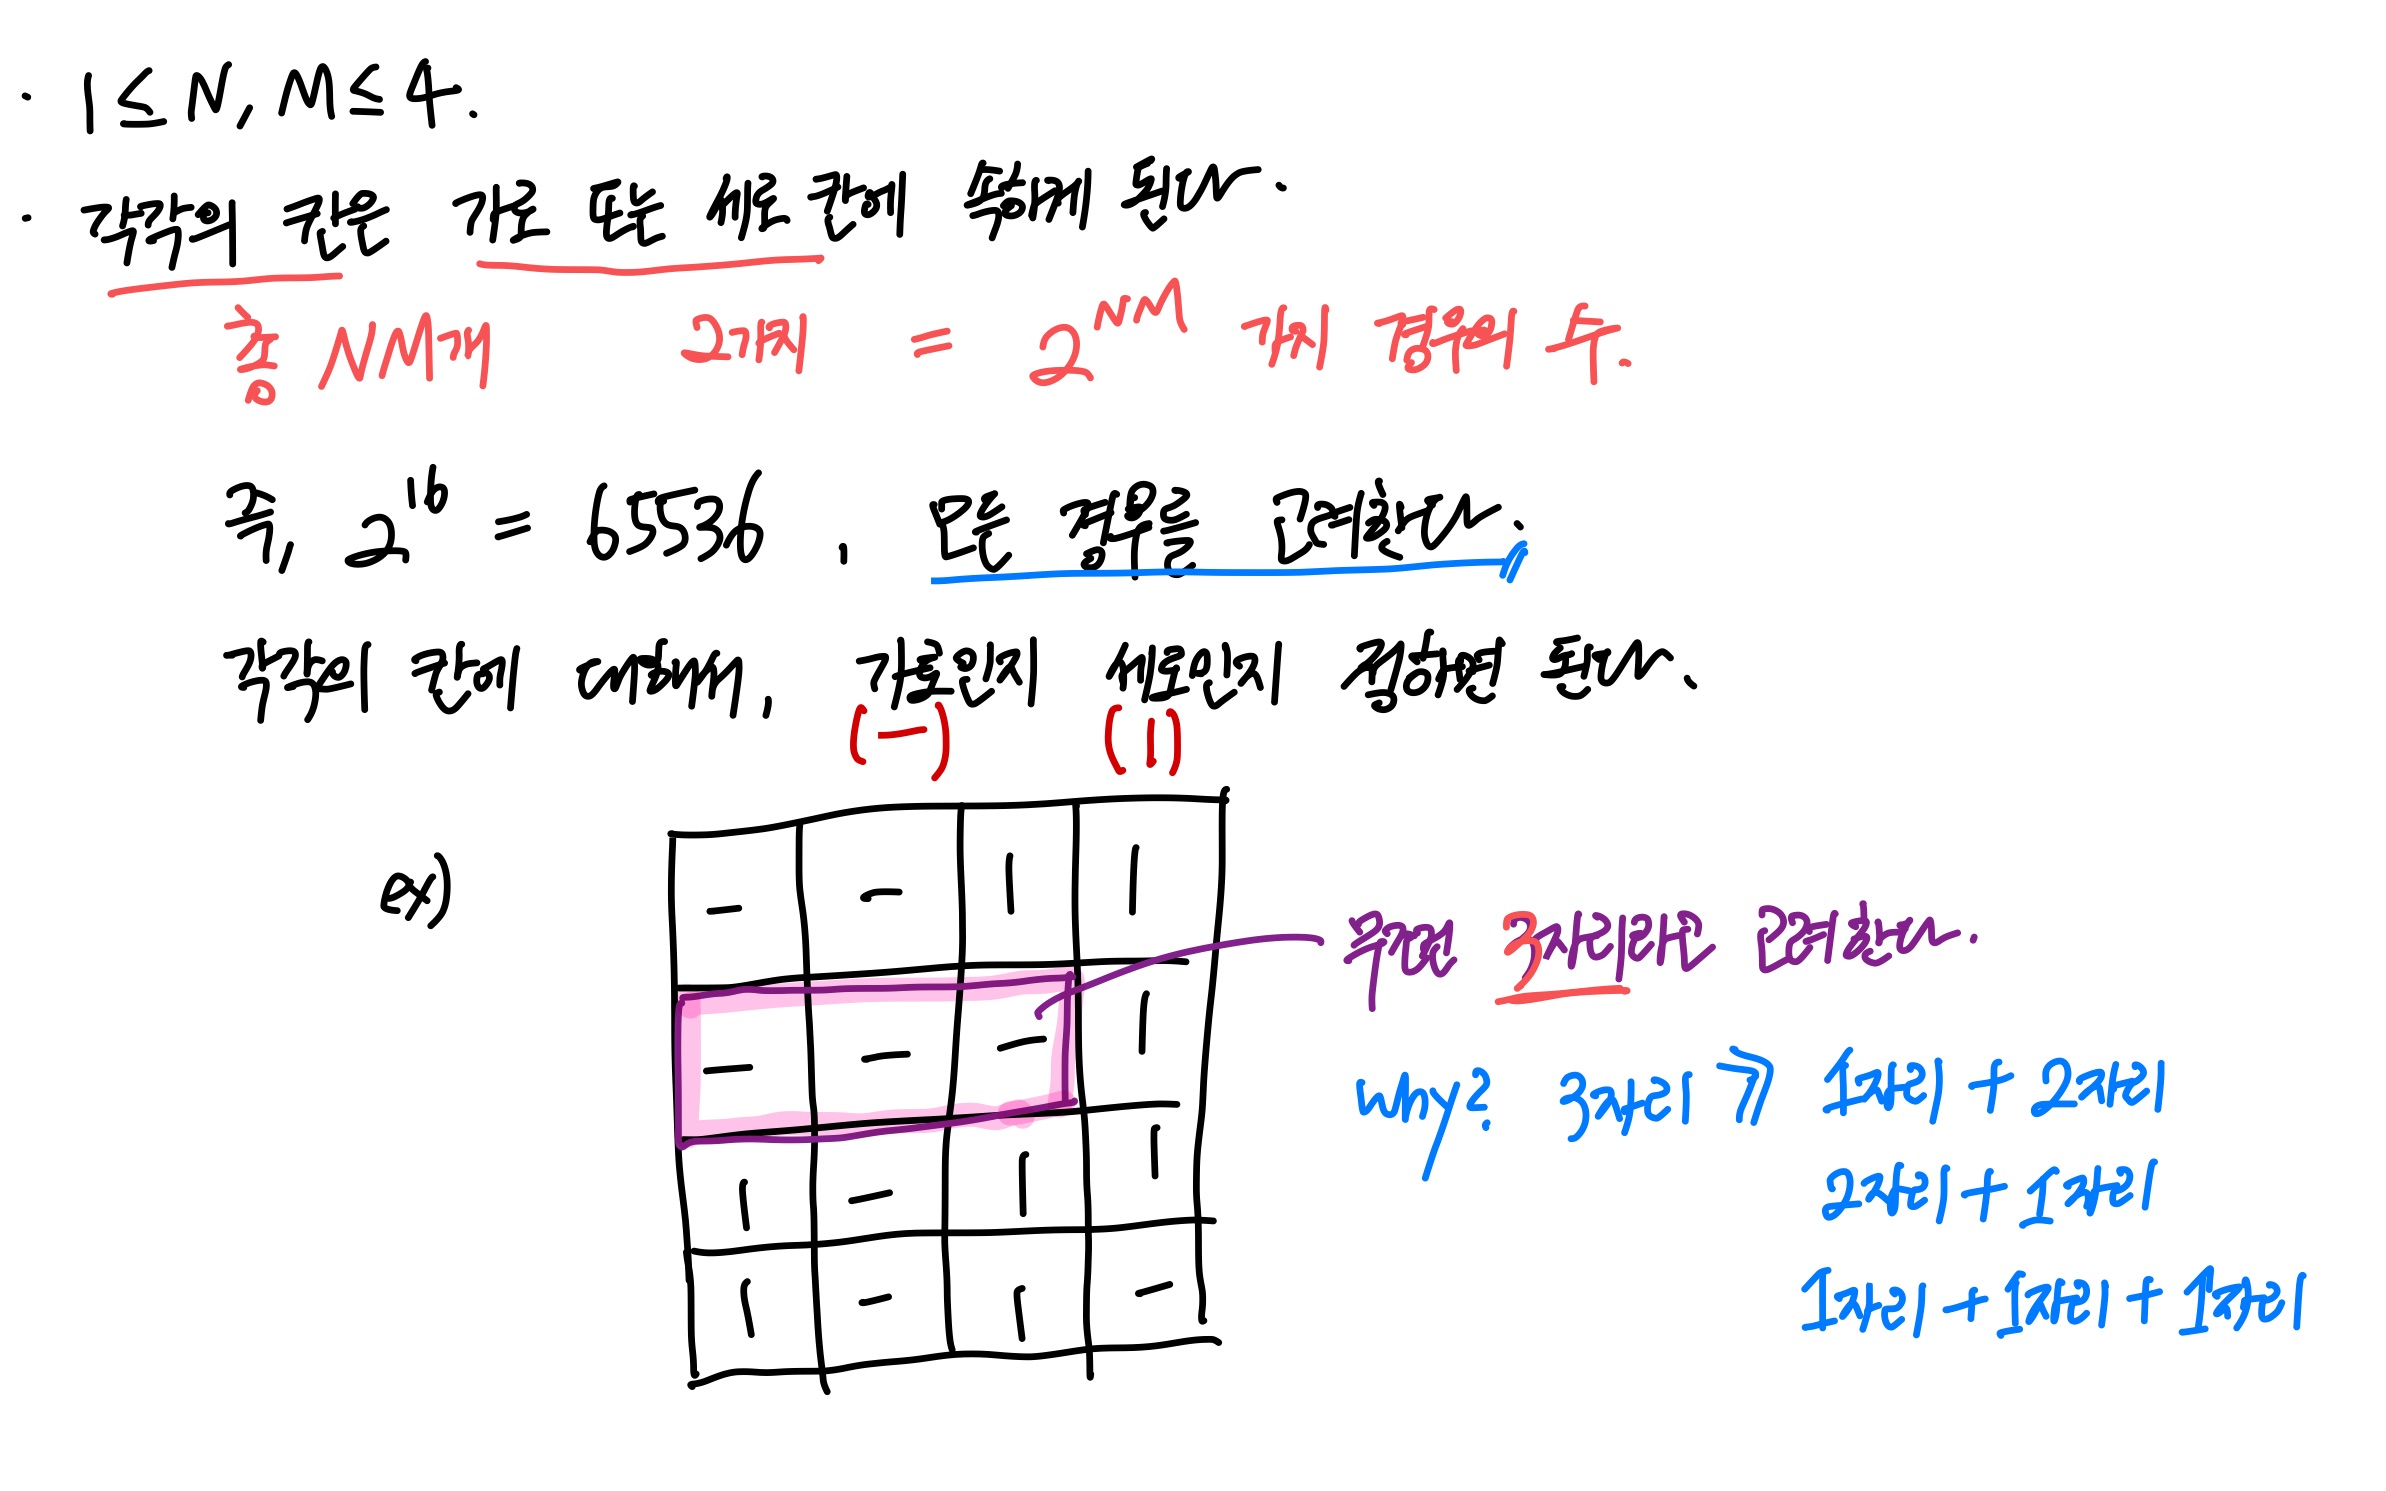 · 1 ≤ N, M ≤ 4.
· 각각의 칸은 가로 또는 세로 칸에 속하게 된다.
총 NM개 2가지 = 2^NM 개의 경우의 수.
즉, 2^16 = 65536, 모든 경우를 고려한다.
각각의 칸에 대해서, 가로인지 세로인지 정하면 된다.
(ㅡ) (ㅣ)
ex)
ㅡ ㅡ ㅣ ㅣ
ㅡ ㅡ ㅡ ㅣ
ㅣ ㅡ ㅣ ㅣ
ㅣ ㅡ ㅣ ㅡ
무조건 3자리라고 고려한다.
why? 3자리 > 1자리 + 2자리
2자리 + 1자리
1자리 + 1자리 + 1자리